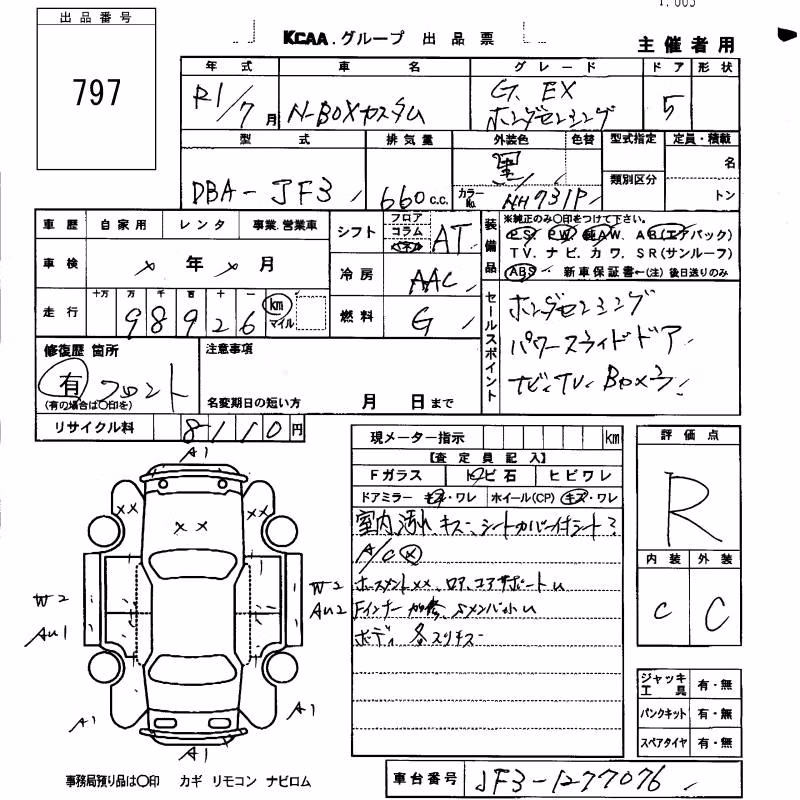 出品番号
797
KCAA.グループ 出品票
主催者用
年式 車名 グレード ドア 形状
R1/7月 N-BOXカスタム G. EX ホンダセンシング 5
型式 排気量 外装色 色替 型式指定 定員・積載
DBA-JF3 660c.c. 黒 カラーNo. NH731P 類別区分 名 トン
車歴 自家用 レンタ 事業.営業車
シフト フロア コラム AT
車検 年 月
冷房 AAC
走行 十万 万 千 百 十 一 98926 km マイル
燃料 G
装備品 ※純正のみ○印をつけて下さい。
PS. PW. 純AW. AB(エアバック)
TV. ナビ. カワ. SR(サンルーフ)
ABS 新車保証書←(注)後日送りのみ
セールスポイント
ホンダセンシング
パワースライドドア
ナビ.TV.
修復歴 箇所
有 フロント
(有の場合は○印を)
注意事項
名変期日の短い方 月 日まで
リサイクル料 8110円
現メーター指示 km
【査定員記入】
Fガラス トビ石 ヒビワレ
ドアミラー キズ・ワレ ホイール(CP) キズ・ワレ
室内汚れ キズ、シートカバー付
A/C
ホースメントXX、ロア、コアサポート
Fインナー
ボディ 各スリキズ
評価点
R
内装 外装
C C
ジャッキ工具 有・無
パンクキット 有・無
スペアタイヤ 有・無
A1
XX
XX
XX
W2
W2
AU1
AU2
A1
A1
A1
事務局預り品は○印 カギ リモコン ナビロム
車台番号 JF3-1277076